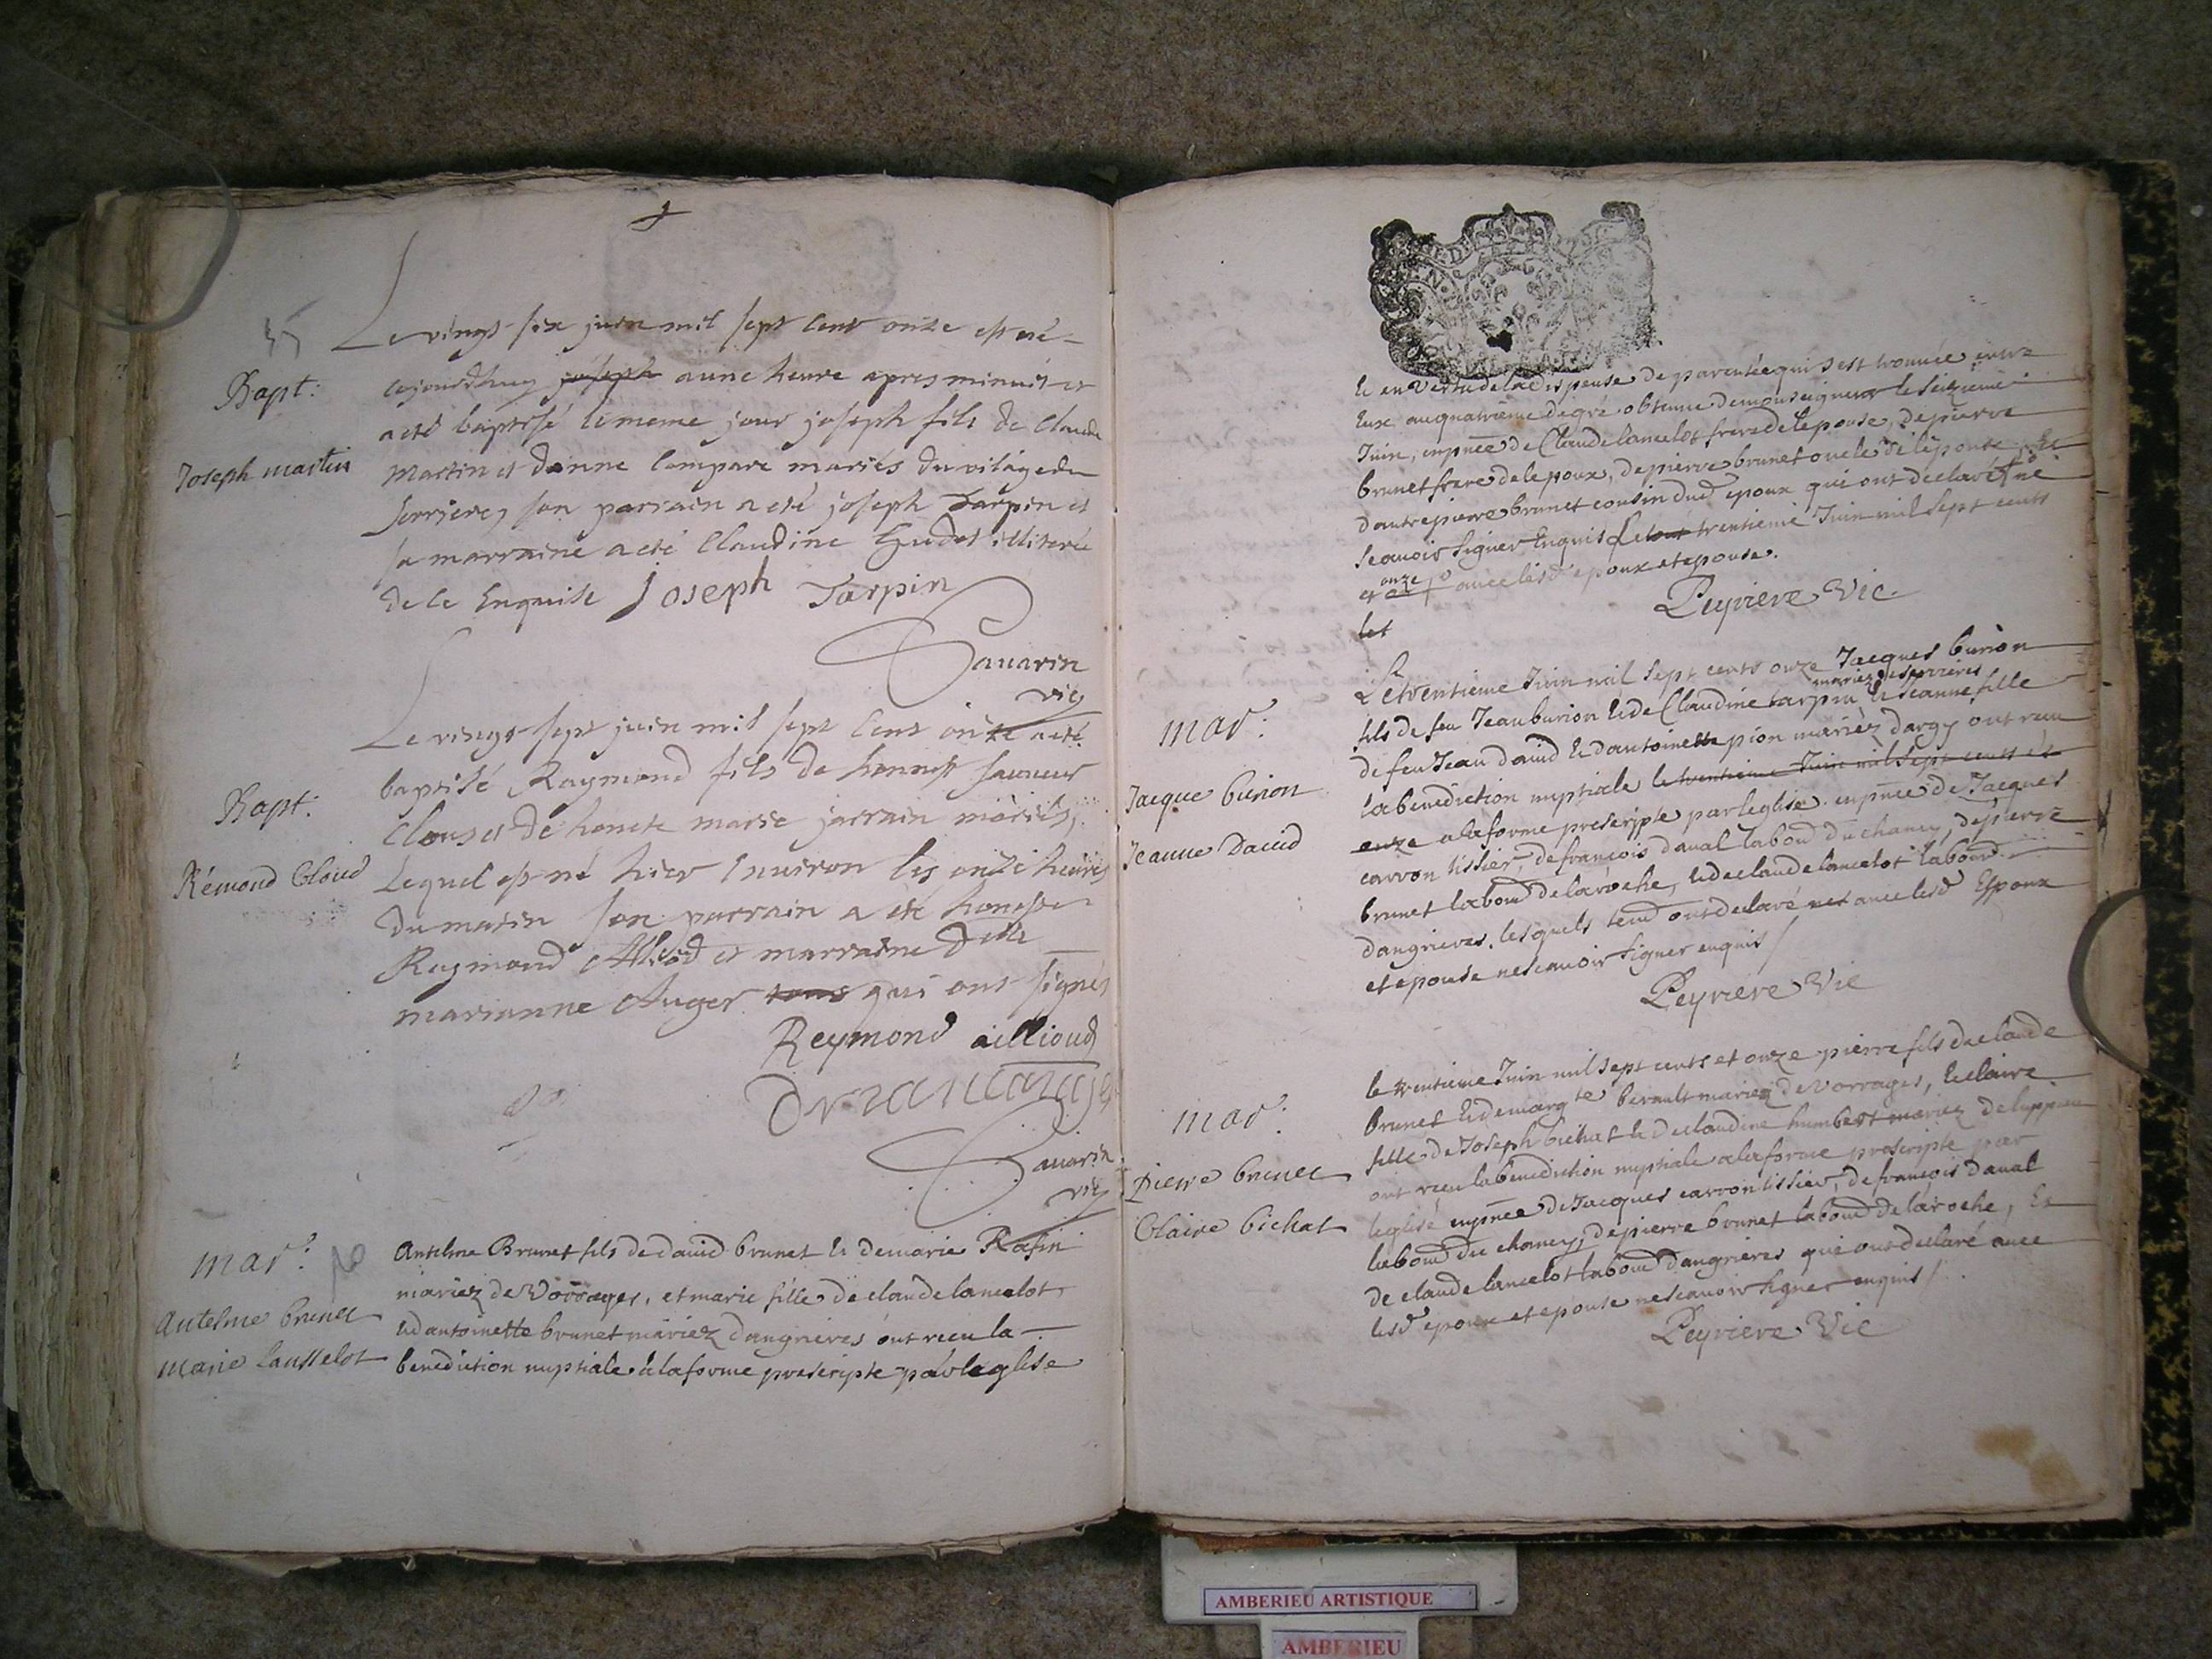 Bapt:
Joseph martin
Le vingt six juin mil sept cent onze est né
cejourdhuy joseph a une heure apres minuit et
a eté baptisé le meme jour joseph fils de Claude
martin et danne compare mariés du vilage de
serrieres son parrain a eté joseph tarpin et
sa marraine a eté Claudine illiterée
de ce Enquise Joseph Tarpin
Sauarin
vic
Bapt:
Rémond Cloud
Le vingt sept juin mil sept cent onze a eté
baptisé Raymond fils de honneste
et de honete marie jarrain mariés,
Lequel est né hier Enuiron les onze heures
du matin son parrain a eté honeste
Raymond et marraine dlle
marianne Auger tous qui ont signés
Reymond aillioud
Sauarin
vic
mar:
Antelme brunet
Marie Lansselot
Antelme Brunet fils de dauid brunet & de marie Rafin
mariez de Vorrages, et marie fille de claude lancelot
& dantoinette brunet mariez dangrieres ont receu la
benediction nuptiale a la forme prescripte par leglise
& en vertu de la dispense de parentée qui sest trouuée entre
Eux au quatrieme degré obtenue de monseigneur le seizieme
Juin, en pnce de Claude lancelot frere de lepouse, de pierre
brunet frere de lepoux, de pierre brunet oncle de lepouse, &
dautre pierre brunet cousin dud epoux qui ont declaré ne
scauoir signer Enquis Le tout trentieme Juin mil sept cents
et onze auec lesd epoux et epouse.
Peyriere Vic
let
mar:
Jacque burion
Jeanne Dauid
Le trentieme Juin mil sept cents onze Jacques burion
mariez de serrieres
fils de feu Jean burion & de Claudine tarpin & Jeanne fille
de feu Jean dauid & dantoinette pion mariez dargy ont receu
la benediction nuptiale le trentieme Juin mil sept cents et
onze a la forme prescripte par leglise en pnce de Jacques
carron tissier, de francois daual laboud du chancy, de pierre
brunet laboud de la roche, & de claude lancelot laboud
dangrieres, lesquels temd ont declaré net auec lesd Epoux
et epouse ne scauoir signer enquis
Peyriere Vic
mar:
Pierre brunet
Claire bichat
le trentieme Juin mil sept cents et onze pierre fils de claude
brunet & de margte berault mariez de Vorrages, & claire
fille de Joseph bichat & de claudine humbert mariez de luppieu
ont receu la benediction nuptiale a la forme prescripte par
leglise en pnce de Jacques carron tissier, de francois daual
laboud du chancy, de pierre brunet laboud de la roche, Et
de claude lancelot laboud dangrieres qui ont declaré auec
lesd epoux et epouse ne scauoir signer enquis
Peyriere Vic
AMBERIEU ARTISTIQUE
AMBERIEU